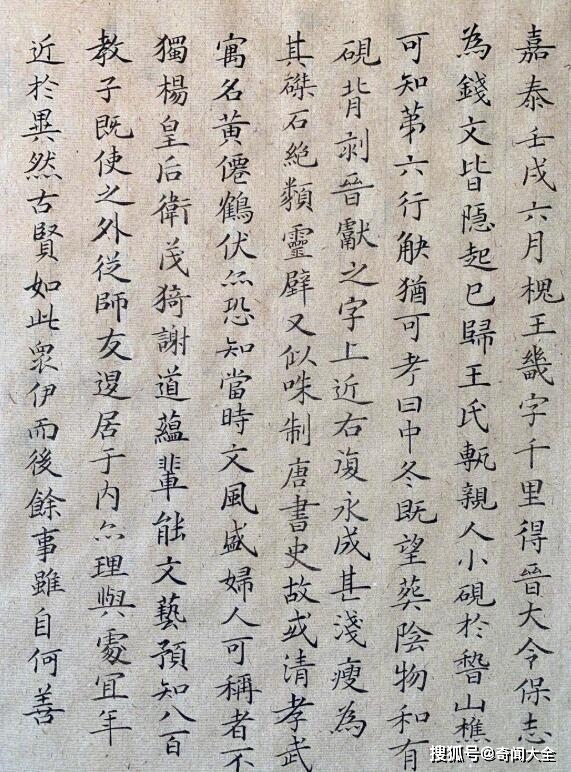 嘉泰壬戌六月槐王畿字千里得晉大令保志
為錢文皆隱起已歸王氏執親人小硯於稽山樵
可知第六行缺猶可考曰中冬既望葬陰物和有
硯背剥晉獻之字上近右復永成甚淺瘦為
其磔石絕類靈壁又似咮制唐書史故或清孝武
寓名黃僊鶴伏亦恐知當時文風盛婦人可稱者不
獨楊皇后衛茂猗謝道蘊輩能文藝預知八百
教子既使之外從師友退居于内亦理與處宜年
近於異然古賢如此衆伊而後餘事雖自何善
搜狐号@奇闻大全